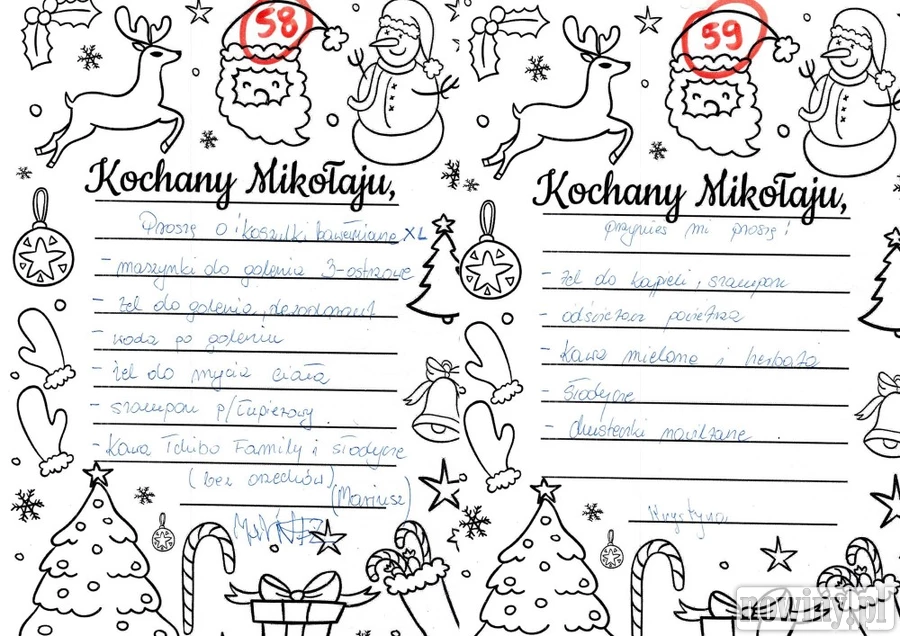 58
Kochany Mikołaju,
Proszę o koszulki bawełniane XL
- maszynki do golenia 3-ostrzowe
- żel do golenia, dezodorant
- woda po goleniu
- żel do mycia ciała
- szampon p/łupieżowy
- Kawa Tchibo Family i słodycze
(bez orzechów)
(Mariusz)
59
Kochany Mikołaju,
przynieś mi proszę!
- żel do kąpieli, szampon
- odświeżacz powietrza
- Kawa mielona i herbata
- słodycze
- chusteczki nawilżane
Krystyna
nowiny.pl